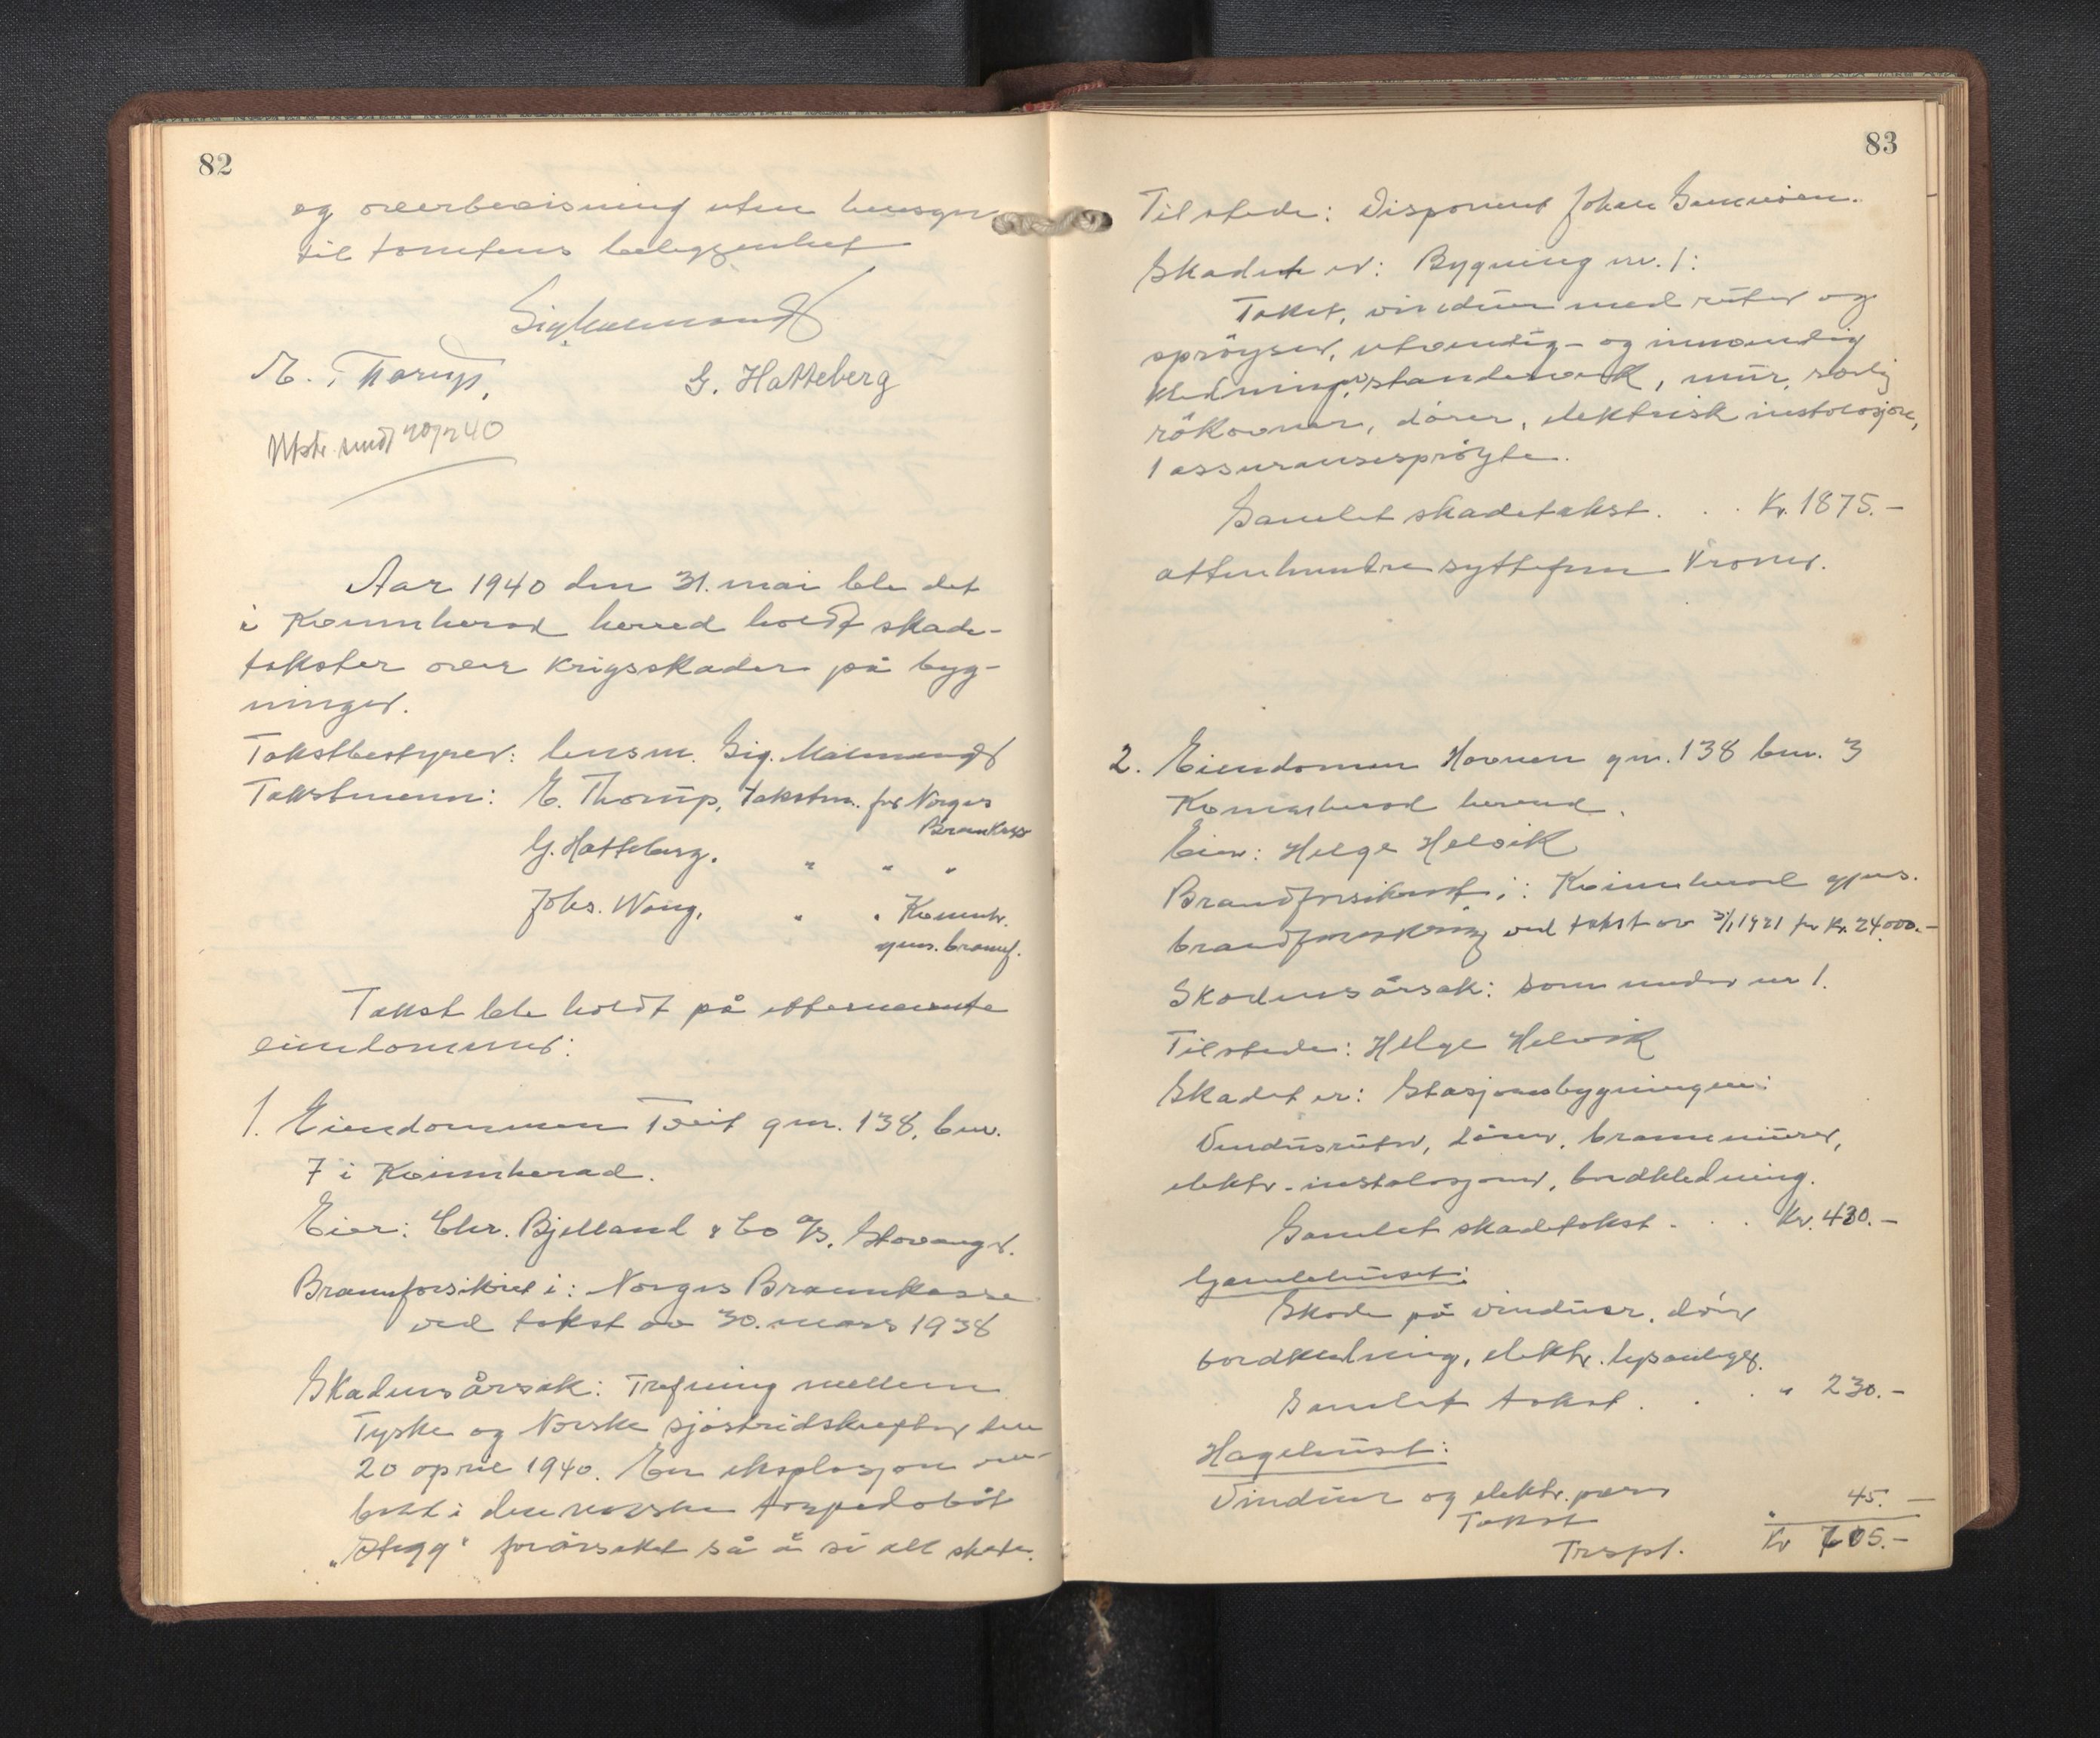 82
og overbevisning uten hensyn
til tomtens beliggenhet
Sig Malmandt
E. Thorup,
G. Hatteberg
Utskr. sendt 20/7 40
Aar 1940 den 31. mai ble det
i Kvinnherad herred holdt skade-
takster over krigsskader på byg-
ninger.
Takstbestyrer: lensm. Sig. Malmandt
Takstmenn: E. Thorup, takstm. for Norges
Brankasse
G. Hatteberg. " " "
Johs. Wang. " " Kvinnh.
gjens. brannf.
Takst ble holdt på etternevnte
eiendommer:
1. Eiendommen Tveit gnr. 138, bnr.
7 i Kvinnherad.
Eier: Chr. Bjelland & Co A/S, Stavanger.
Brannforsikret i: Norges Brannkasse
ved takst av 30. mars 1938
Skadens årsak: Trefning mellem
Tyske og Norske sjöstridskrefter den
20 april 1940. En eksplosjon om-
bord i den norske torpedobåt
"Stegg" forårsaket så å si all skade.
83
Tilstede: Disponent Johan
Skadet er: Bygning nr. 1:
Taket, vinduer med ruter og
sprøyser, utvendig- og innvendig
kledning, standerverk, mur, særlig
rökovner, dörer, elektrisk instalasjon,
1 assuransesprøyte.
Samlet skadetakst. . . Kr. 1875.-
attenhundre syttifem Kroner.
2. Eiendommen Havnen gnr. 138 bnr. 3
Kvinnherad herred.
Eier: Helge Helvik
Brandforsikret i: Kvinnherad gjens.
brandforsikring ved takst av 3/1 1921 for Kr. 24.000.-
Skadens årsak: som under nr 1.
Tilstede: Helge Helvik
Skadet er: Stasjonsbygningen:
Vindusruter, dörer, brannmurer,
elektr. instalasjoner, bordkledning.
Samlet skadetakst . . . Kr. 430.-
Gamlehuset:
Skade på vinduer, dörer
bordkledning, elektr. lysanlegg.
Samlet takst . . . " 230.-
Hagehuset:
Vinduer og elektr. pærer
Takst " 45.-
Trspt. Kr 705.-